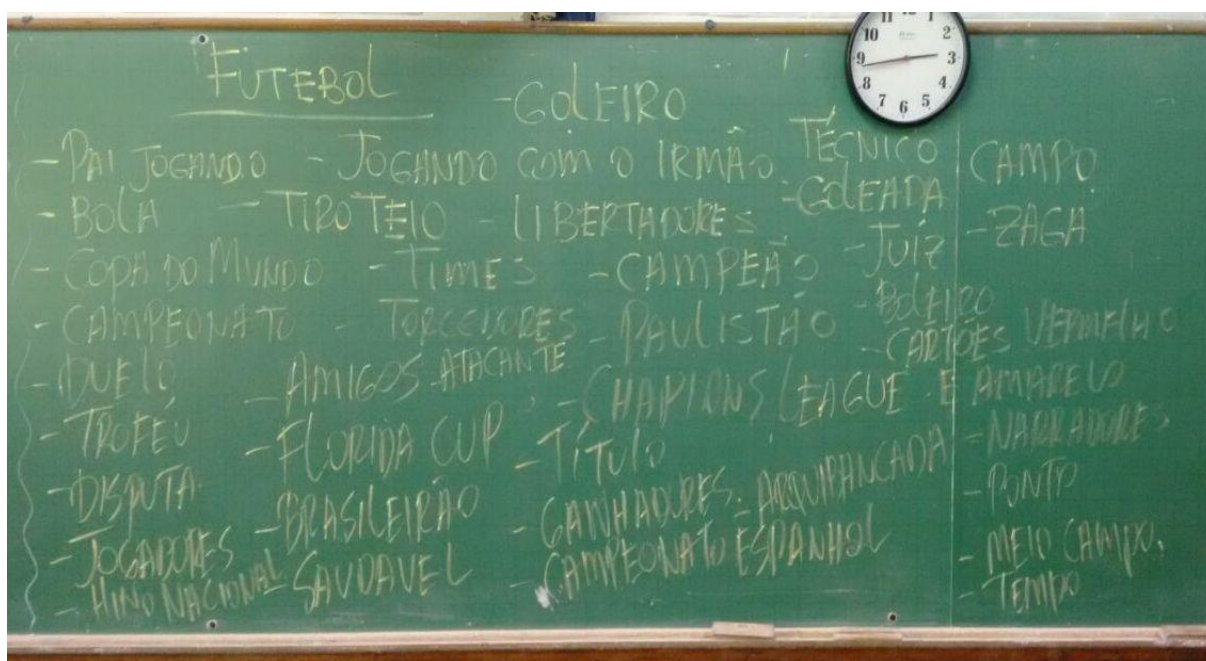 FUTEBOL
- GOLEIRO
- PAI JOGANDO - JOGANDO COM O IRMÃO TÉCNICO CAMPO
- BOLA - TIROTEIO - LIBERTADORES - GOLEADA - ZAGA
- COPA DO MUNDO - TIMES - CAMPEÃO - JUÍZ
- CAMPEONATO - TORCEDORES - PAULISTÃO - BOLEIRO
- DUELO - AMIGOS - ATACANTE - CHAPIONS LEAGUE - CARTÕES VERMELHO E AMARELO
- TROFÉU - FLORIDA CUP - TÍTULO - NARRADORES
- DISPUTA - BRASILEIRÃO - GANHADORES - ARQUIBANCADA - PONTO
- JOGADORES - SAUDAVEL - CAMPEONATO ESPANHOL - MEIO CAMPO.
- HINO NACIONAL - TEMPO
11 12 1
10 2
9 3
8 4
7 6 5